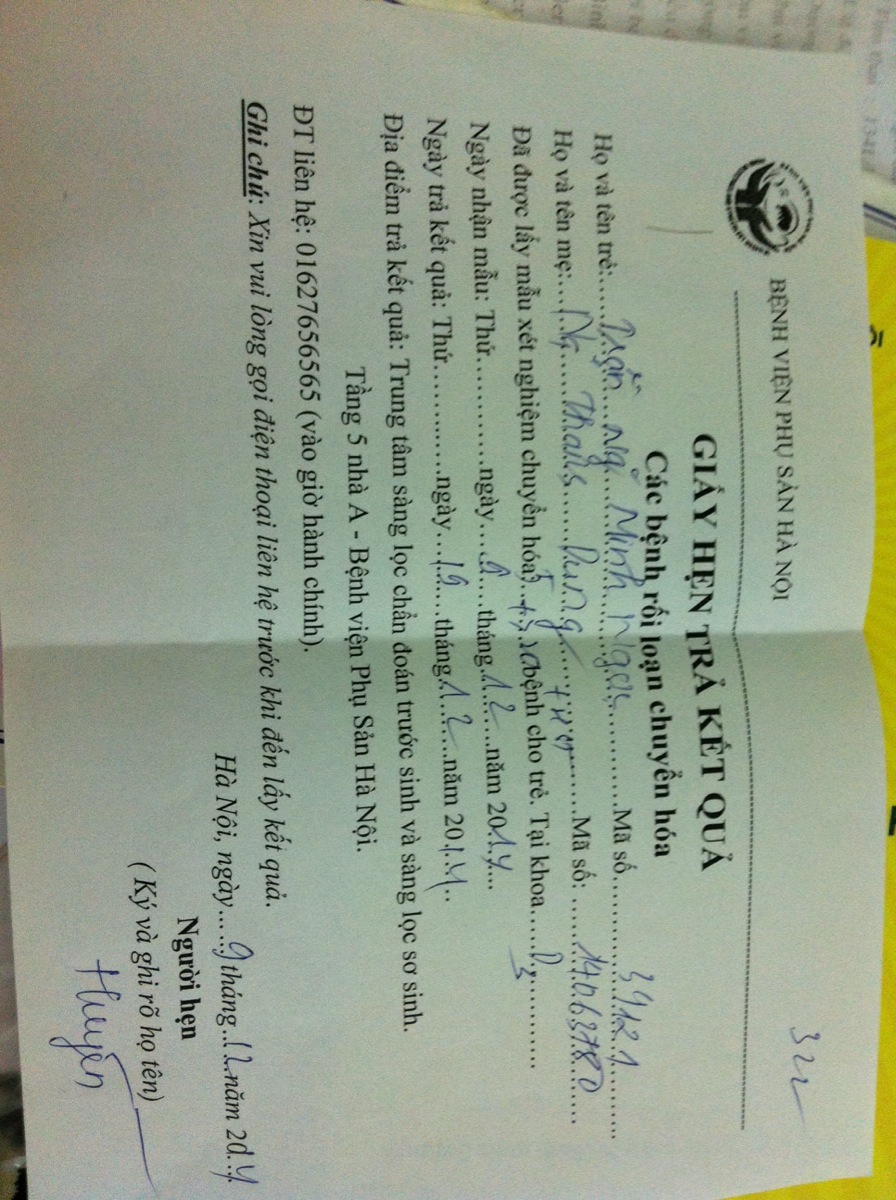 322
BỆNH VIỆN PHỤ SẢN HÀ NỘI
GIẤY HẸN TRẢ KẾT QUẢ
Các bệnh rối loạn chuyển hóa
Họ và tên trẻ: Trần Ng Minh Ngọc Mã số 39121
Họ và tên mẹ: Ng Thanh Dung Mã số: 14063780
Đã được lấy mẫu xét nghiệm chuyển hóa bệnh cho trẻ. Tại khoa D3
Ngày nhận mẫu: Thứ............ngày 9 tháng 12 năm 2014
Ngày trả kết quả: Thứ............ngày 19 tháng 12 năm 2014
Địa điểm trả kết quả: Trung tâm sàng lọc chẩn đoán trước sinh và sàng lọc sơ sinh.
Tầng 5 nhà A - Bệnh viện Phụ Sản Hà Nội.
ĐT liên hệ: 01627656565 (vào giờ hành chính).
Ghi chú: Xin vui lòng gọi điện thoại liên hệ trước khi đến lấy kết quả.
Hà Nội, ngày 9 tháng 12 năm 2014
Người hẹn
( Ký và ghi rõ họ tên)
Huyền